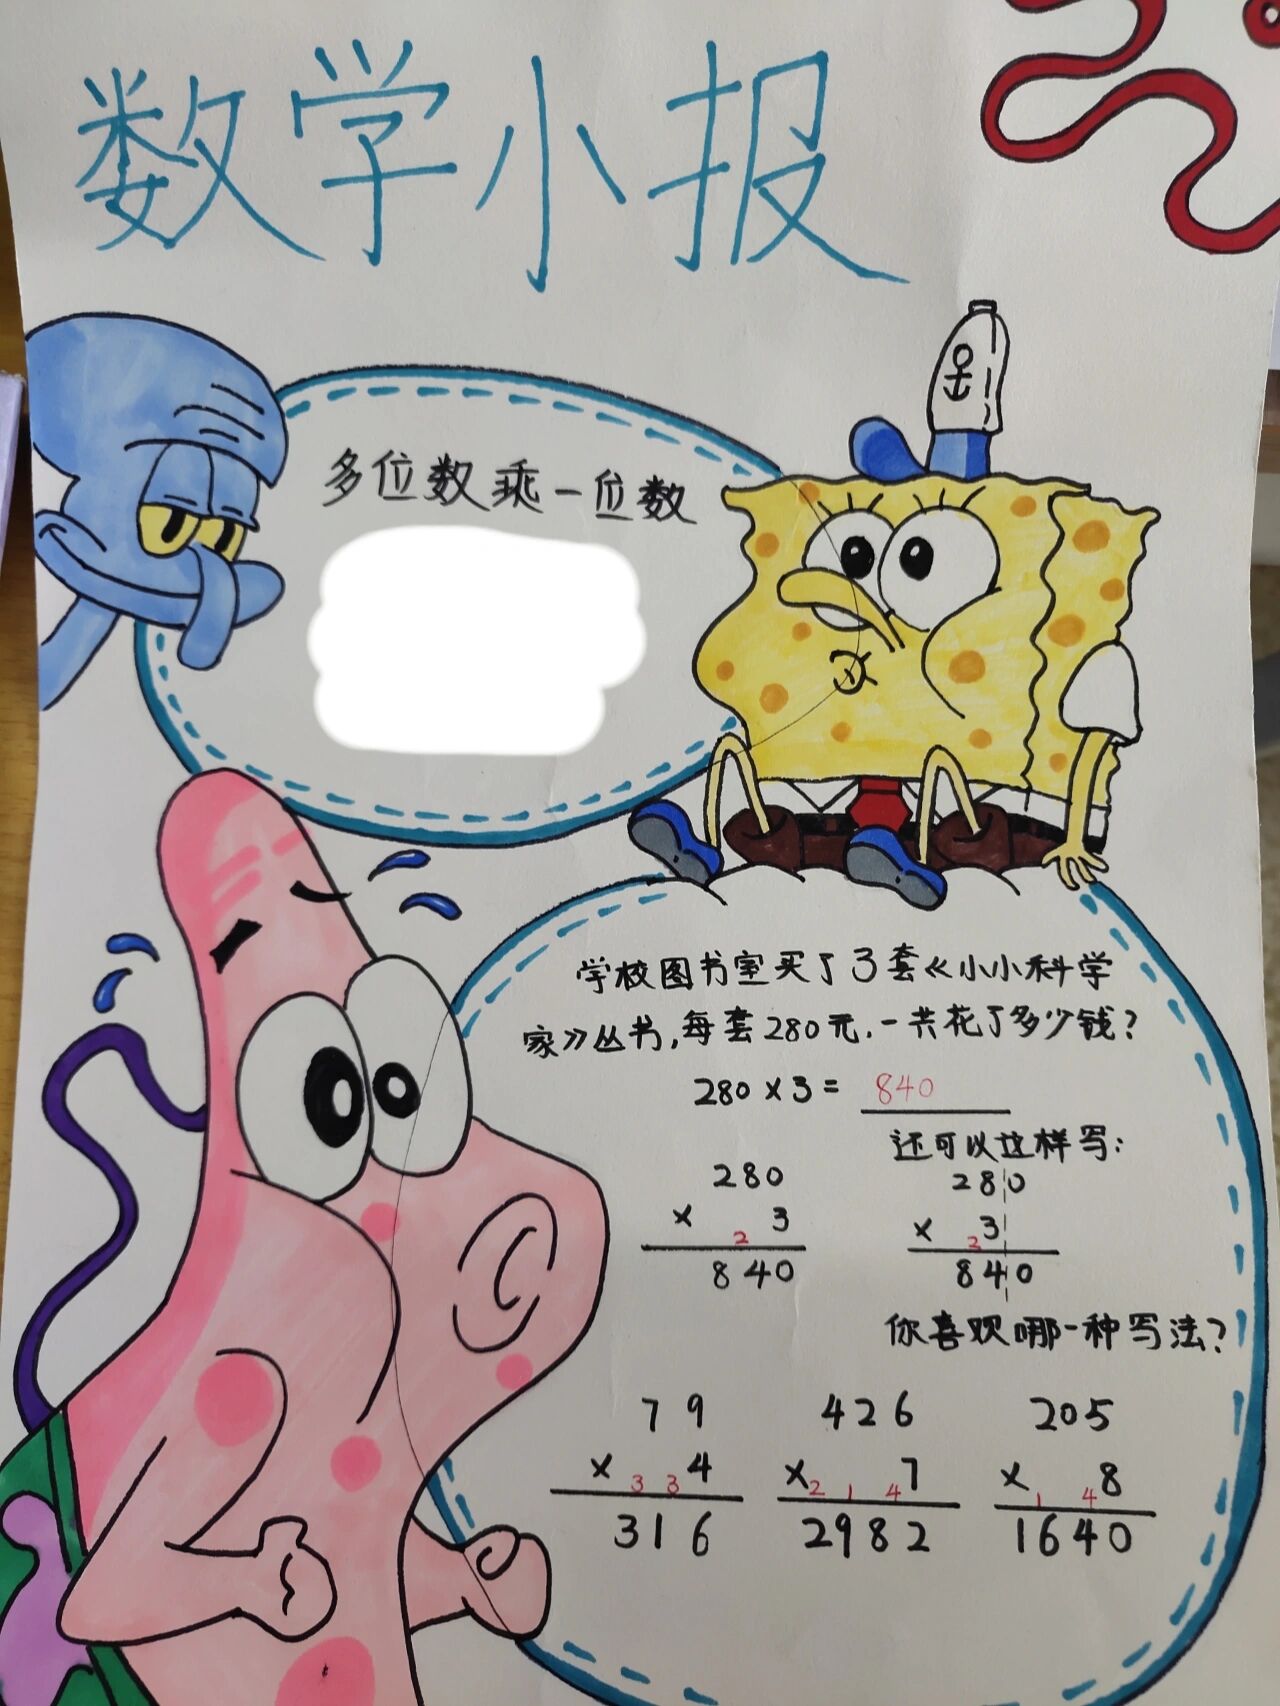 数学小报
多位数乘一位数
学校图书室买了3套《小小科学
家》丛书,每套280元.一共花了多少钱?
280×3= 840
还可以这样写:
280
× 2 3
840
280
× 2 3
840
你喜欢哪一种写法?
79
× 3 3 4
316
426
× 2 1 4 7
2982
205
× 1 4 8
1640